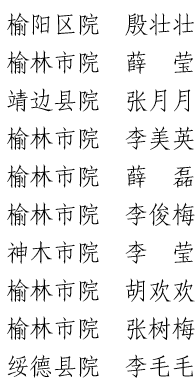 榆阳区院 殷壮壮
榆林市院 薛　莹
靖边县院 张月月
榆林市院 李美英
榆林市院 薛　磊
榆林市院 李俊梅
神木市院 李　莹
榆林市院 胡欢欢
榆林市院 张树梅
绥德县院 李毛毛